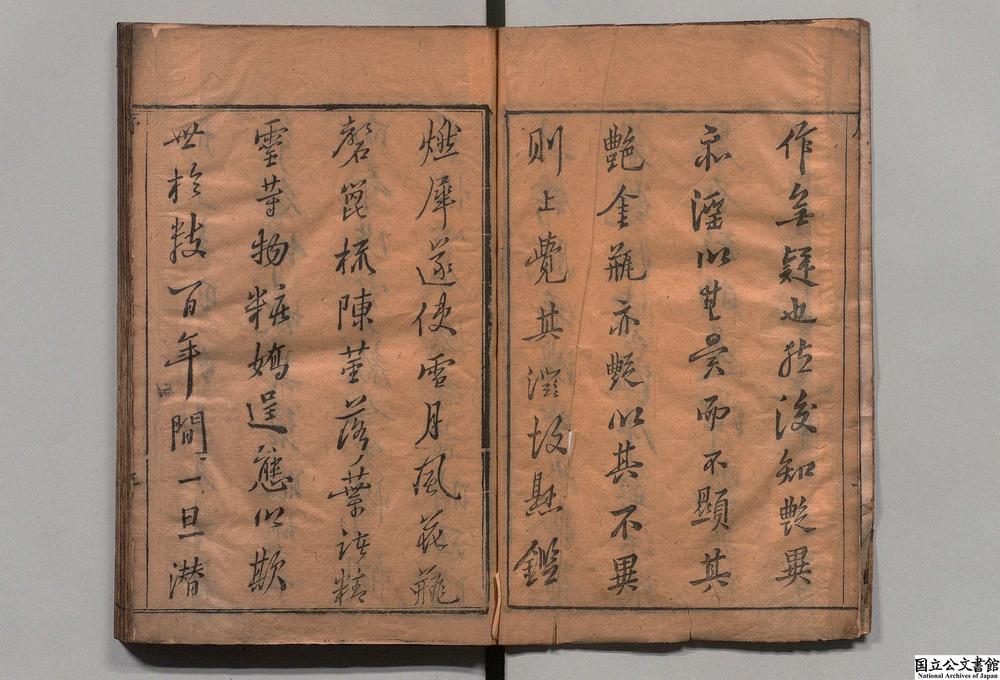 作無疑也然後知艷異
亦淫以其異而不顯其
艷金瓶亦艷以其不異
則止覺其淫故懸鑑
燃犀遂使雪月風花瓶
磬篦梳陳莖落葉諸精
靈等物粧嬌逞態以欺
世於數百年間一旦潜
国立公文書館
National Archives of Japan